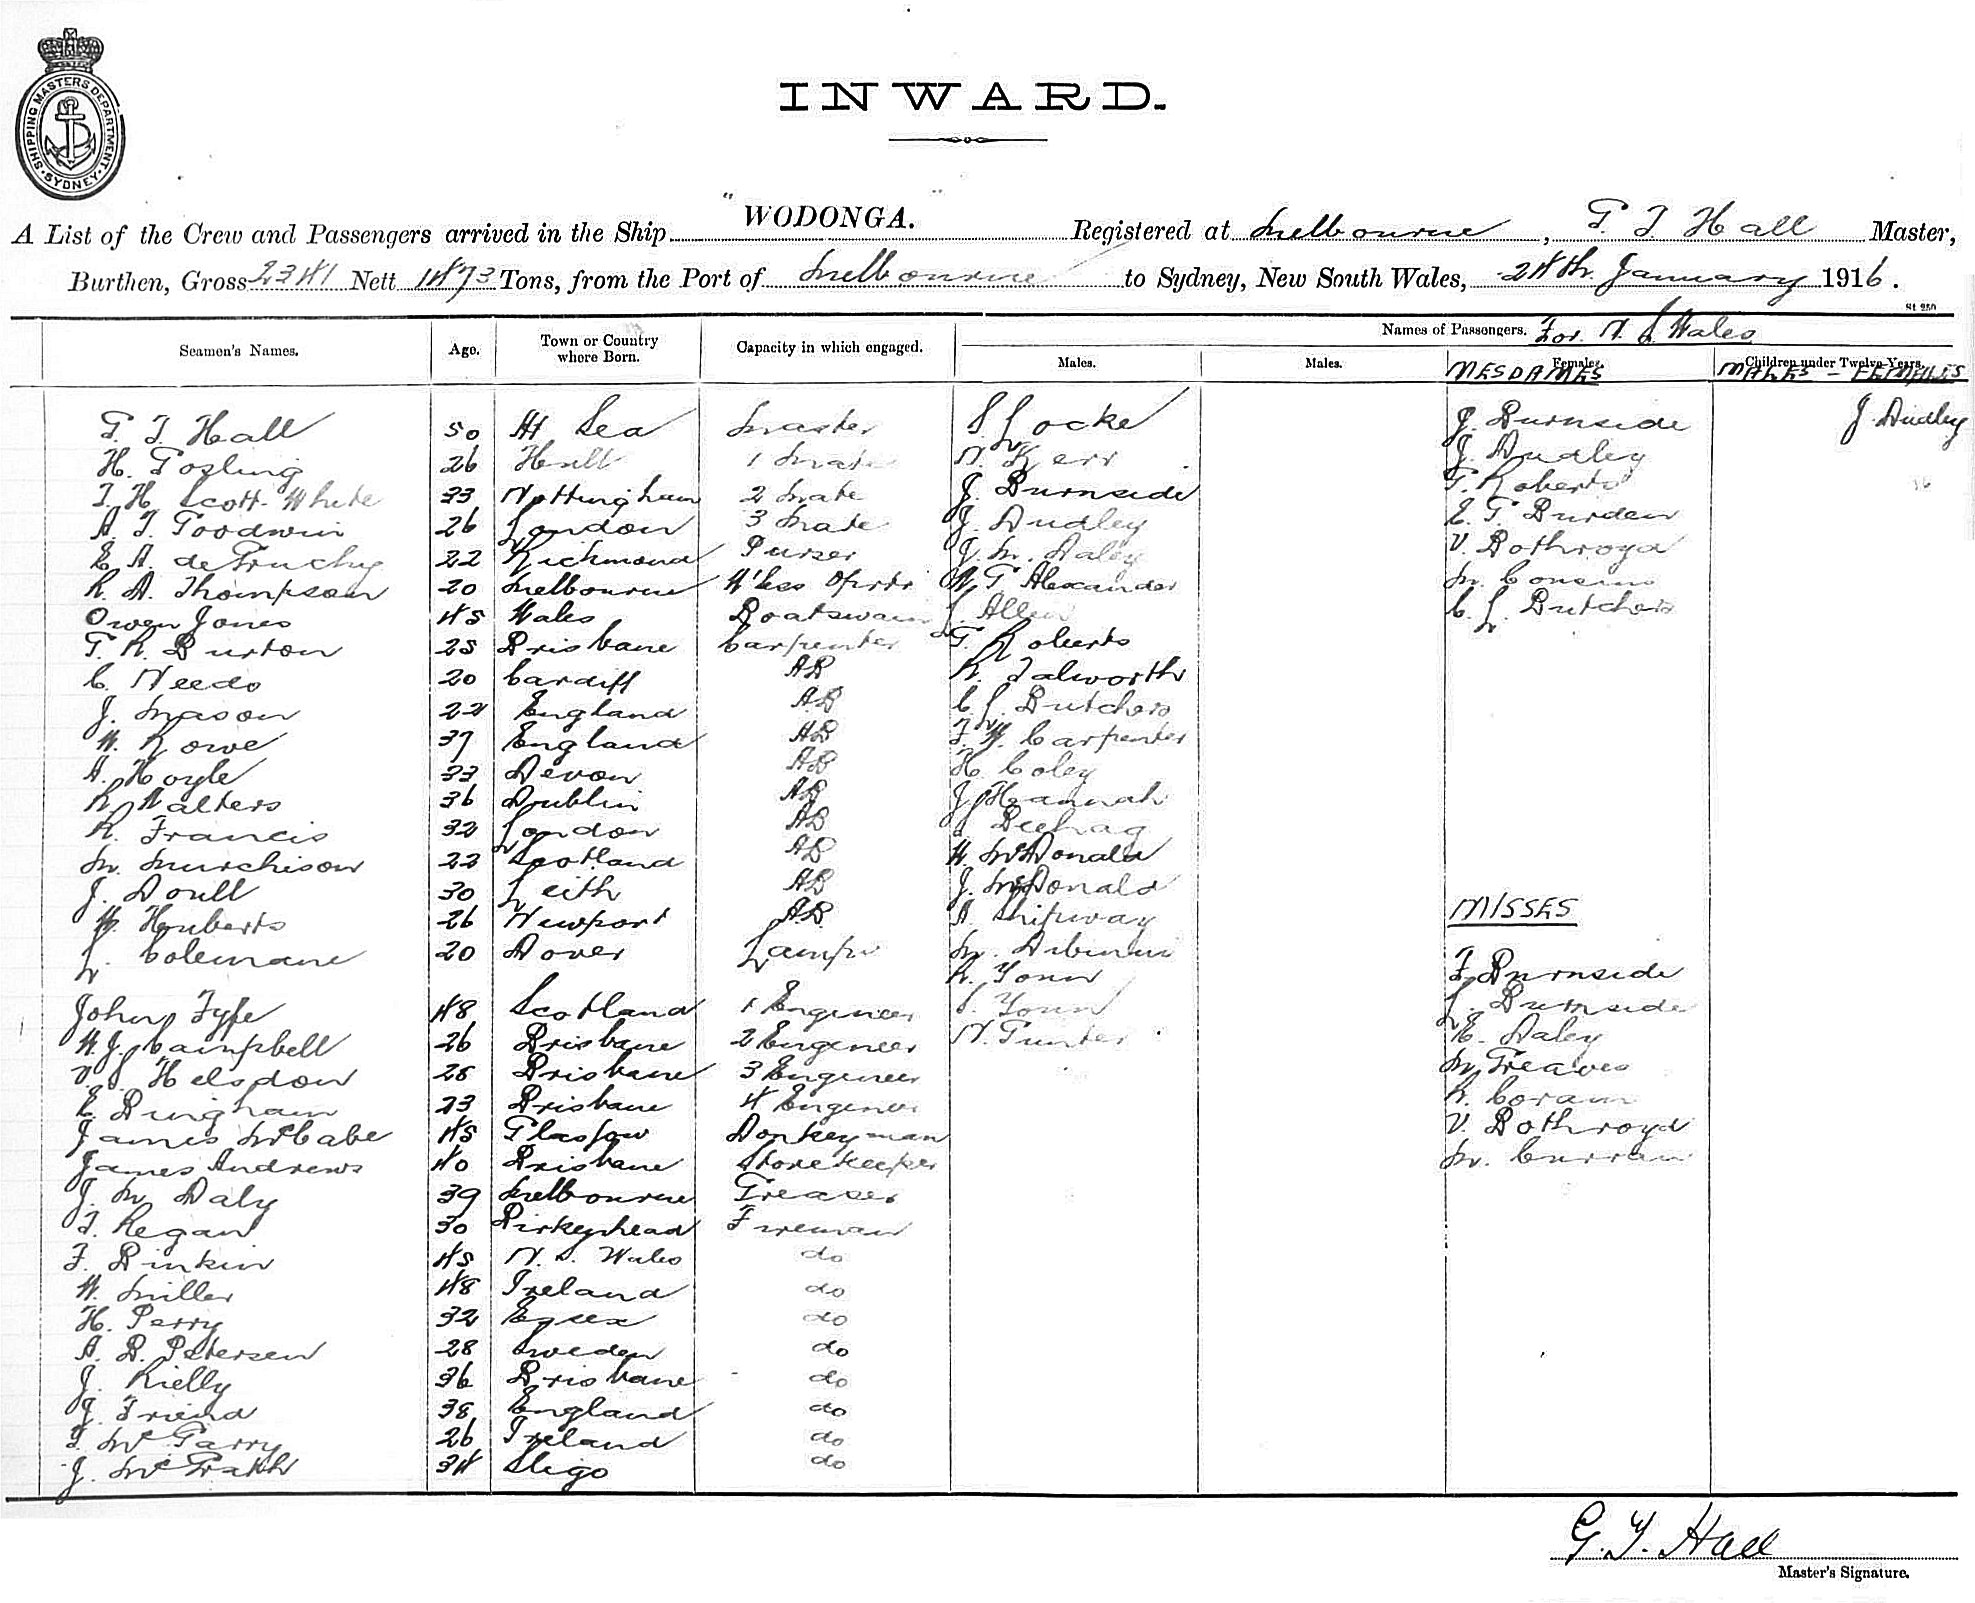 SHIPPING MASTERS DEPARTMENT
SYDNEY
INWARD.
A List of the Crew and Passengers arrived in the Ship "WODONGA." Registered at Melbourne, G. T. Hall Master,
Burthen, Gross 2341 Nett 1473 Tons, from the Port of Melbourne to Sydney, New South Wales, 24th January 1916.
St 250
Seamen's Names. Age. Town or Country where Born. Capacity in which engaged. Names of Passengers. For N. S. Wales
Males. Males. Females. MESDAMES Children under Twelve Years. MALES - FEMALES
G. T. Hall 50 At Sea Master S. Locke J. Burnside J. Dudley
H. Gosling 26 Hull 1 Mate N. Kerr J. Dudley
T. H. Scott-White 33 Nottingham 2 Mate J. Burnside G. Roberts
A. T. Goodwin 26 London 3 Mate J. Dudley E. G. Burden
E. A. de Gruchy 22 Richmond Purser J. M. Daley V. Bothroyd
R. A. Thompson 20 Melbourne W'less W. G. Alexander M. Cousins
Owen Jones 45 Wales Boatswain L. Allen C. L. Butchers
G. R. Burton 25 Brisbane Carpenter G. Roberts
C. Needs 20 Cardiff AB R. Talworth
J. Mason 22 England AB C. L. Butchers
W. Rowe 37 England AB F. W. Carpenter
A. Hoyle 33 Devon AB H. Coley
R. Walters 36 Dublin AB J. Hannah
R. Francis 32 London AB Beehag
M. Murchison 22 Scotland AB W. McDonald
J. Doull 30 Leith AB J. McDonald
W. Huberts 26 Newport AB A. Shipway MISSES
L. Colemane 20 Dover Lamps M.
R. Youn F. Burnside
John Fyfe 48 Scotland 1 Engineer S. Youn L. Burnside
W. J. Campbell 26 Brisbane 2 Engineer N. Gunter E. Daley
V. Helsdon 28 Brisbane 3 Engineer M. Greaves
E. Bingham 23 Brisbane 4 Engineer R. Coram
James McCabe 45 Glasgow Donkeyman V. Bothroyd
James Andrews 40 Brisbane Storekeeper M. Curran
J. M. Daly 39 Melbourne Greaser
T. Regan 30 Birkenhead Fireman
F. Binkin 45 N. S. Wales do
W. Miller 48 Ireland do
H. Perry 32 Essex do
A. B. Petersen 28 Sweden do
J. Rielly 36 Brisbane do
J. Friend 38 England do
T. McGarry 26 Ireland do
J. McGrath 34 Sligo do
G. T. Hall
Master's Signature.